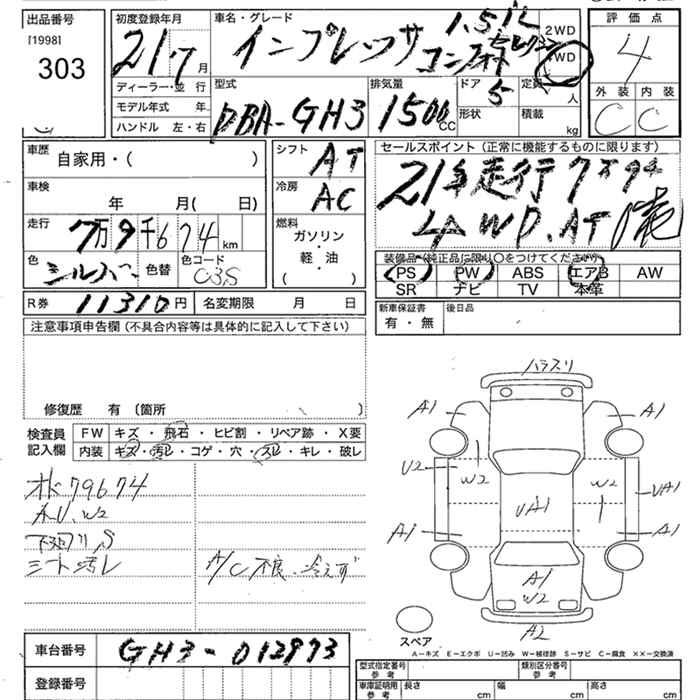 出品番号
[1998]
303
初度登録年月
21 7 月
車名・グレード
インプレッサ 1.5iL
2WD
4WD
評価点
4
外装 内装
C C
ディーラー・並行
モデル年式 年
ハンドル 左・右
型式
DBA-GH3
排気量
1500 CC
ドア
5
形状
定員
人
積載
kg
車歴
自家用・( )
車検
年 月( 日)
走行
7万9千674 km
色
シルバー
色替
色コード
C3S
シフト
AT
冷房
AC
燃料
ガソリン
・
軽・油
( )
セールスポイント(正常に機能するものに限ります)
21年走行7万9千
4WD.AT
装備品(純正品に限り〇をつけてください)
PS PW ABS エアB AW
SR ナビ TV 本革
R券
11310円
名変期限 月 日
新車保証書
有・無
後日品
注意事項申告欄(不具合内容等は具体的に記入して下さい)
修復歴 有 〔箇所 〕
検査員
記入欄
FW キズ・飛石・ヒビ割・リペア跡・X要
内装 キズ・汚レ・コゲ・穴・スレ・キレ・破レ
79674
A.U.W2
下廻りS
シート汚レ
A/C不良、冷えず
A1
A1
U2
W2
W2
UA1
UA1
A1
A1
A1
W2
A2
スペア
A-キズ E-エクボ U-凹み W-補修跡 S-サビ C-腐食 XX-交換済
車台番号
GH3-012973
登録番号
型式指定番号
参考
類別区分番号
参考
車庫証明用
参考
長さ cm
幅 cm
高さ cm